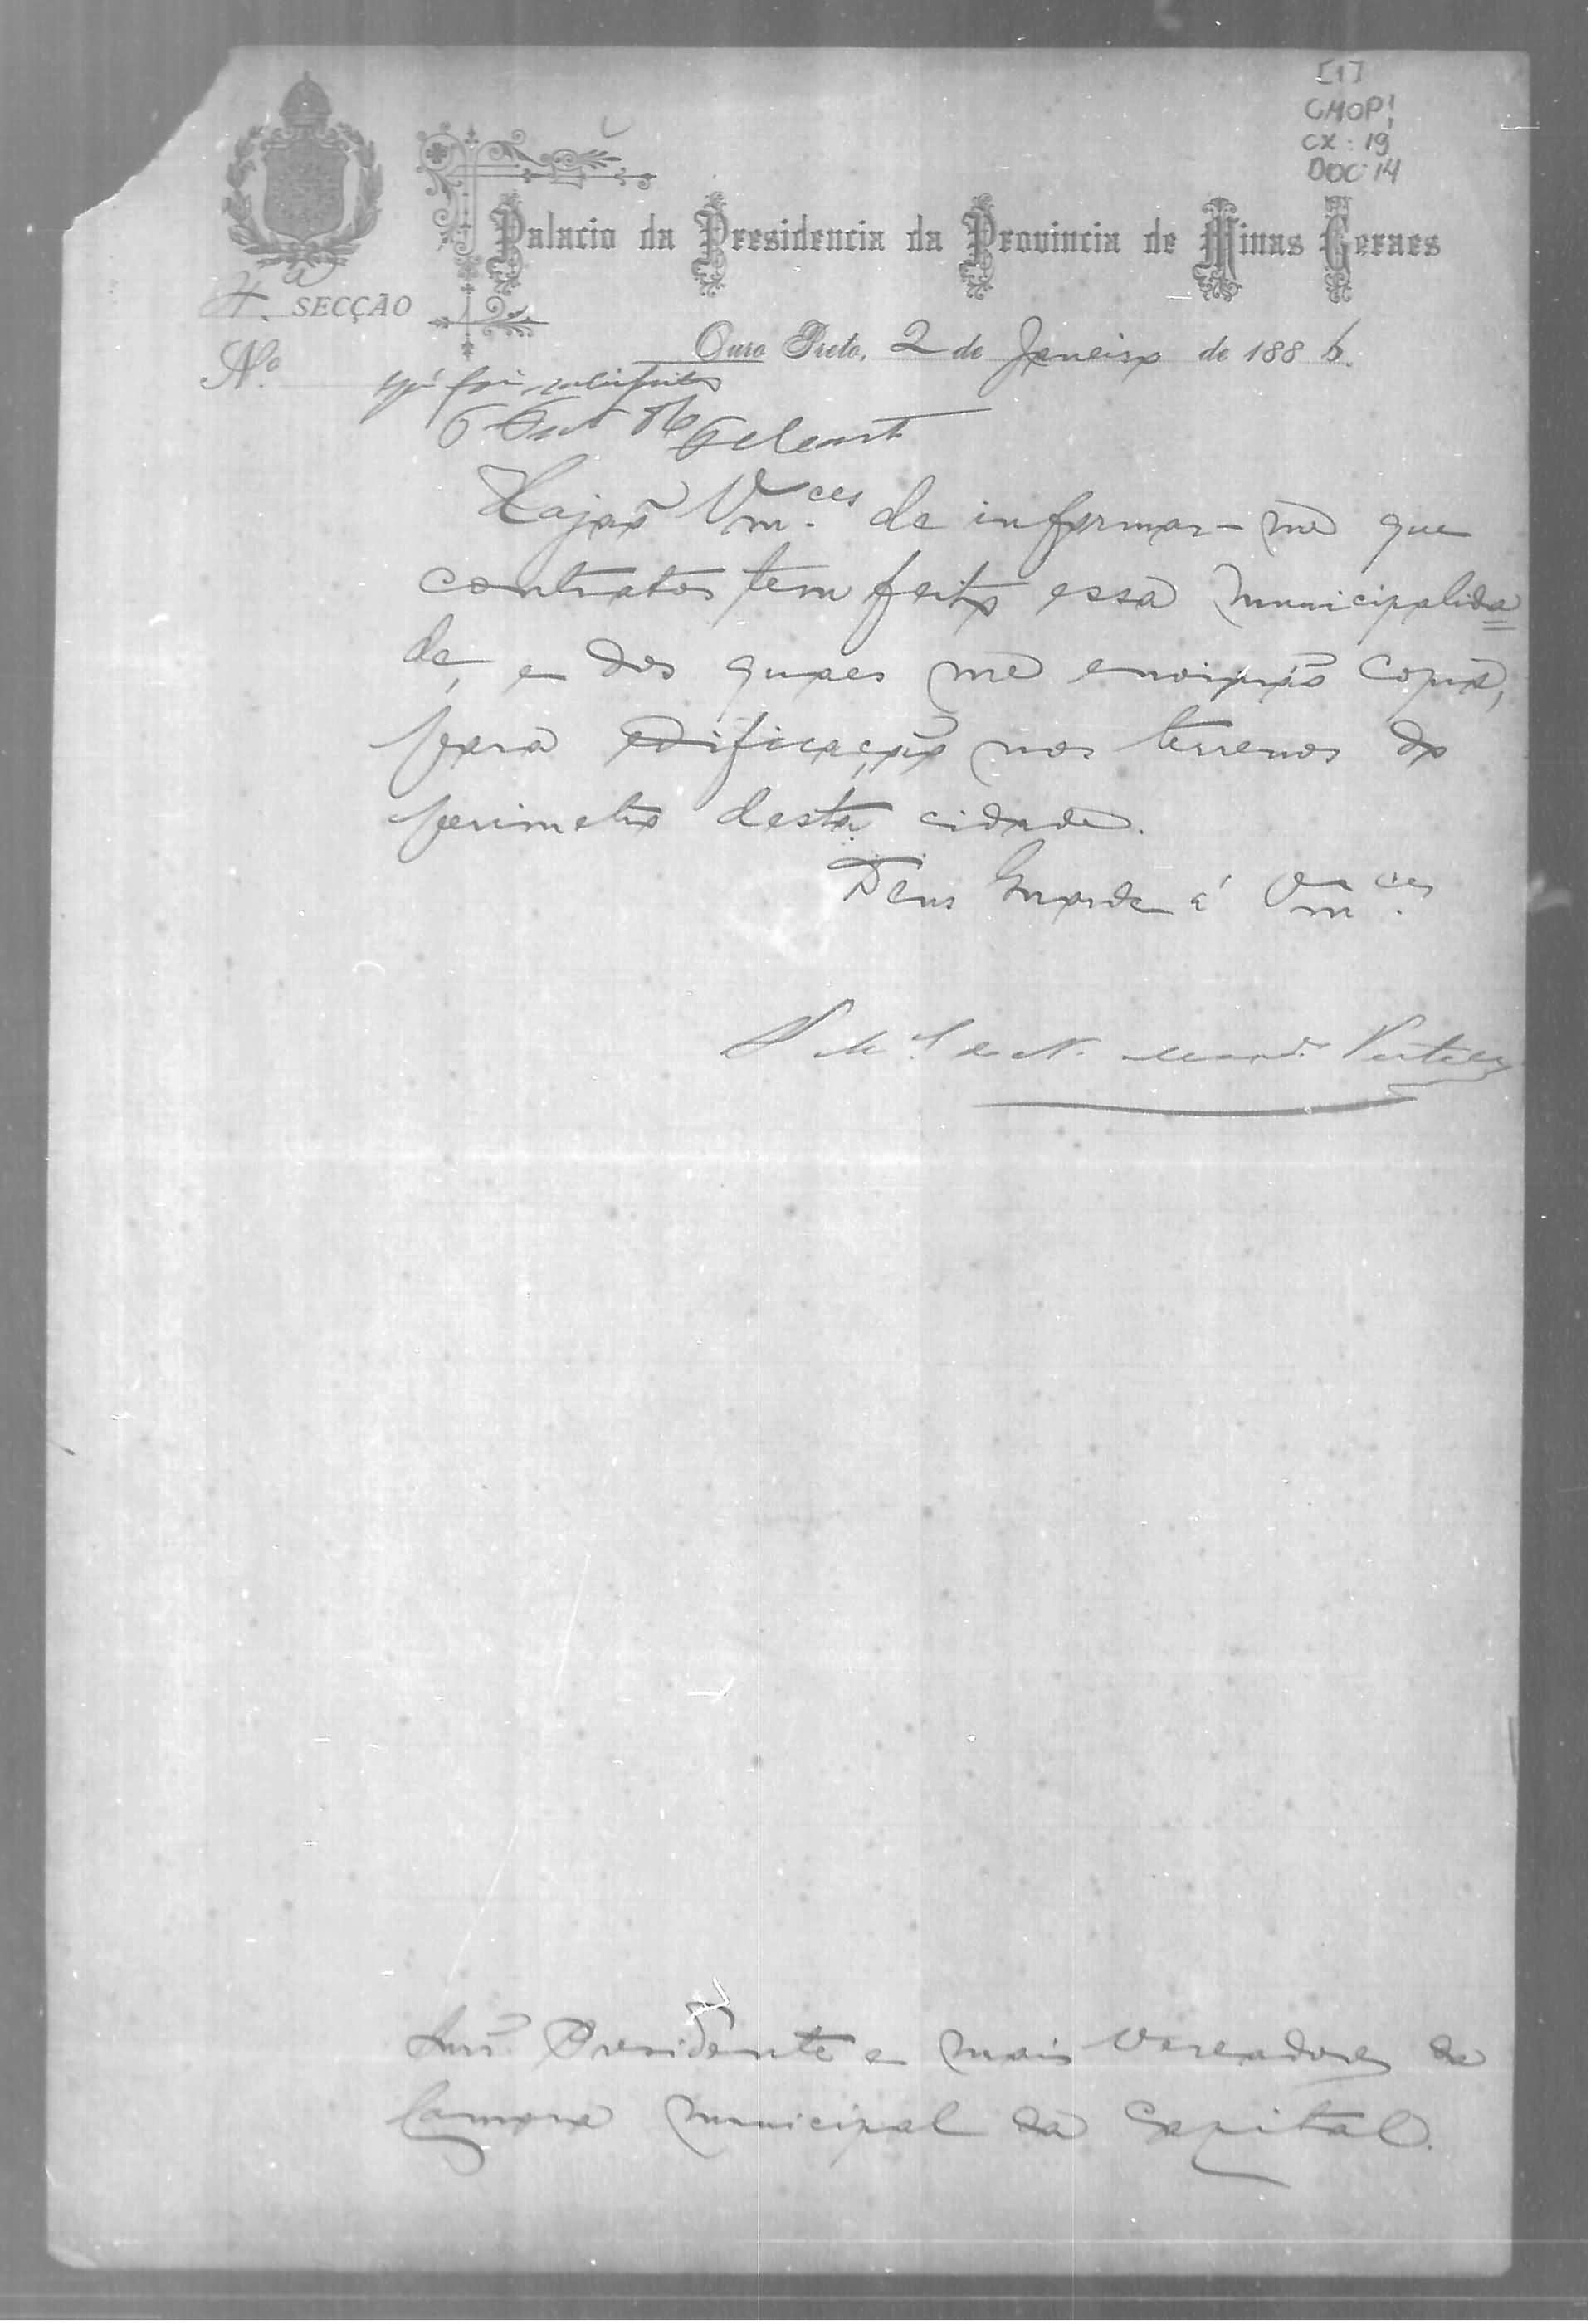 [1]
CMOP!
CX: 19
DOC 14
Palacio da Presidencia da Provincia de Minas Geraes
4.ª SECÇÃO
Ouro Preto, 2 de Janeiro de 1886.
N.º
já foi
Hajaõ Vm.ces de informar-me que
contratos tem feito essa municipalida=
de, e dos quaes me enviaráõ copia,
para edificação nos terrenos do
perimetro desta cidade.
Deus Guarde á Vm.ces
Snr. Presidente e mais Vereadores da
Camara Municipal da Capital.